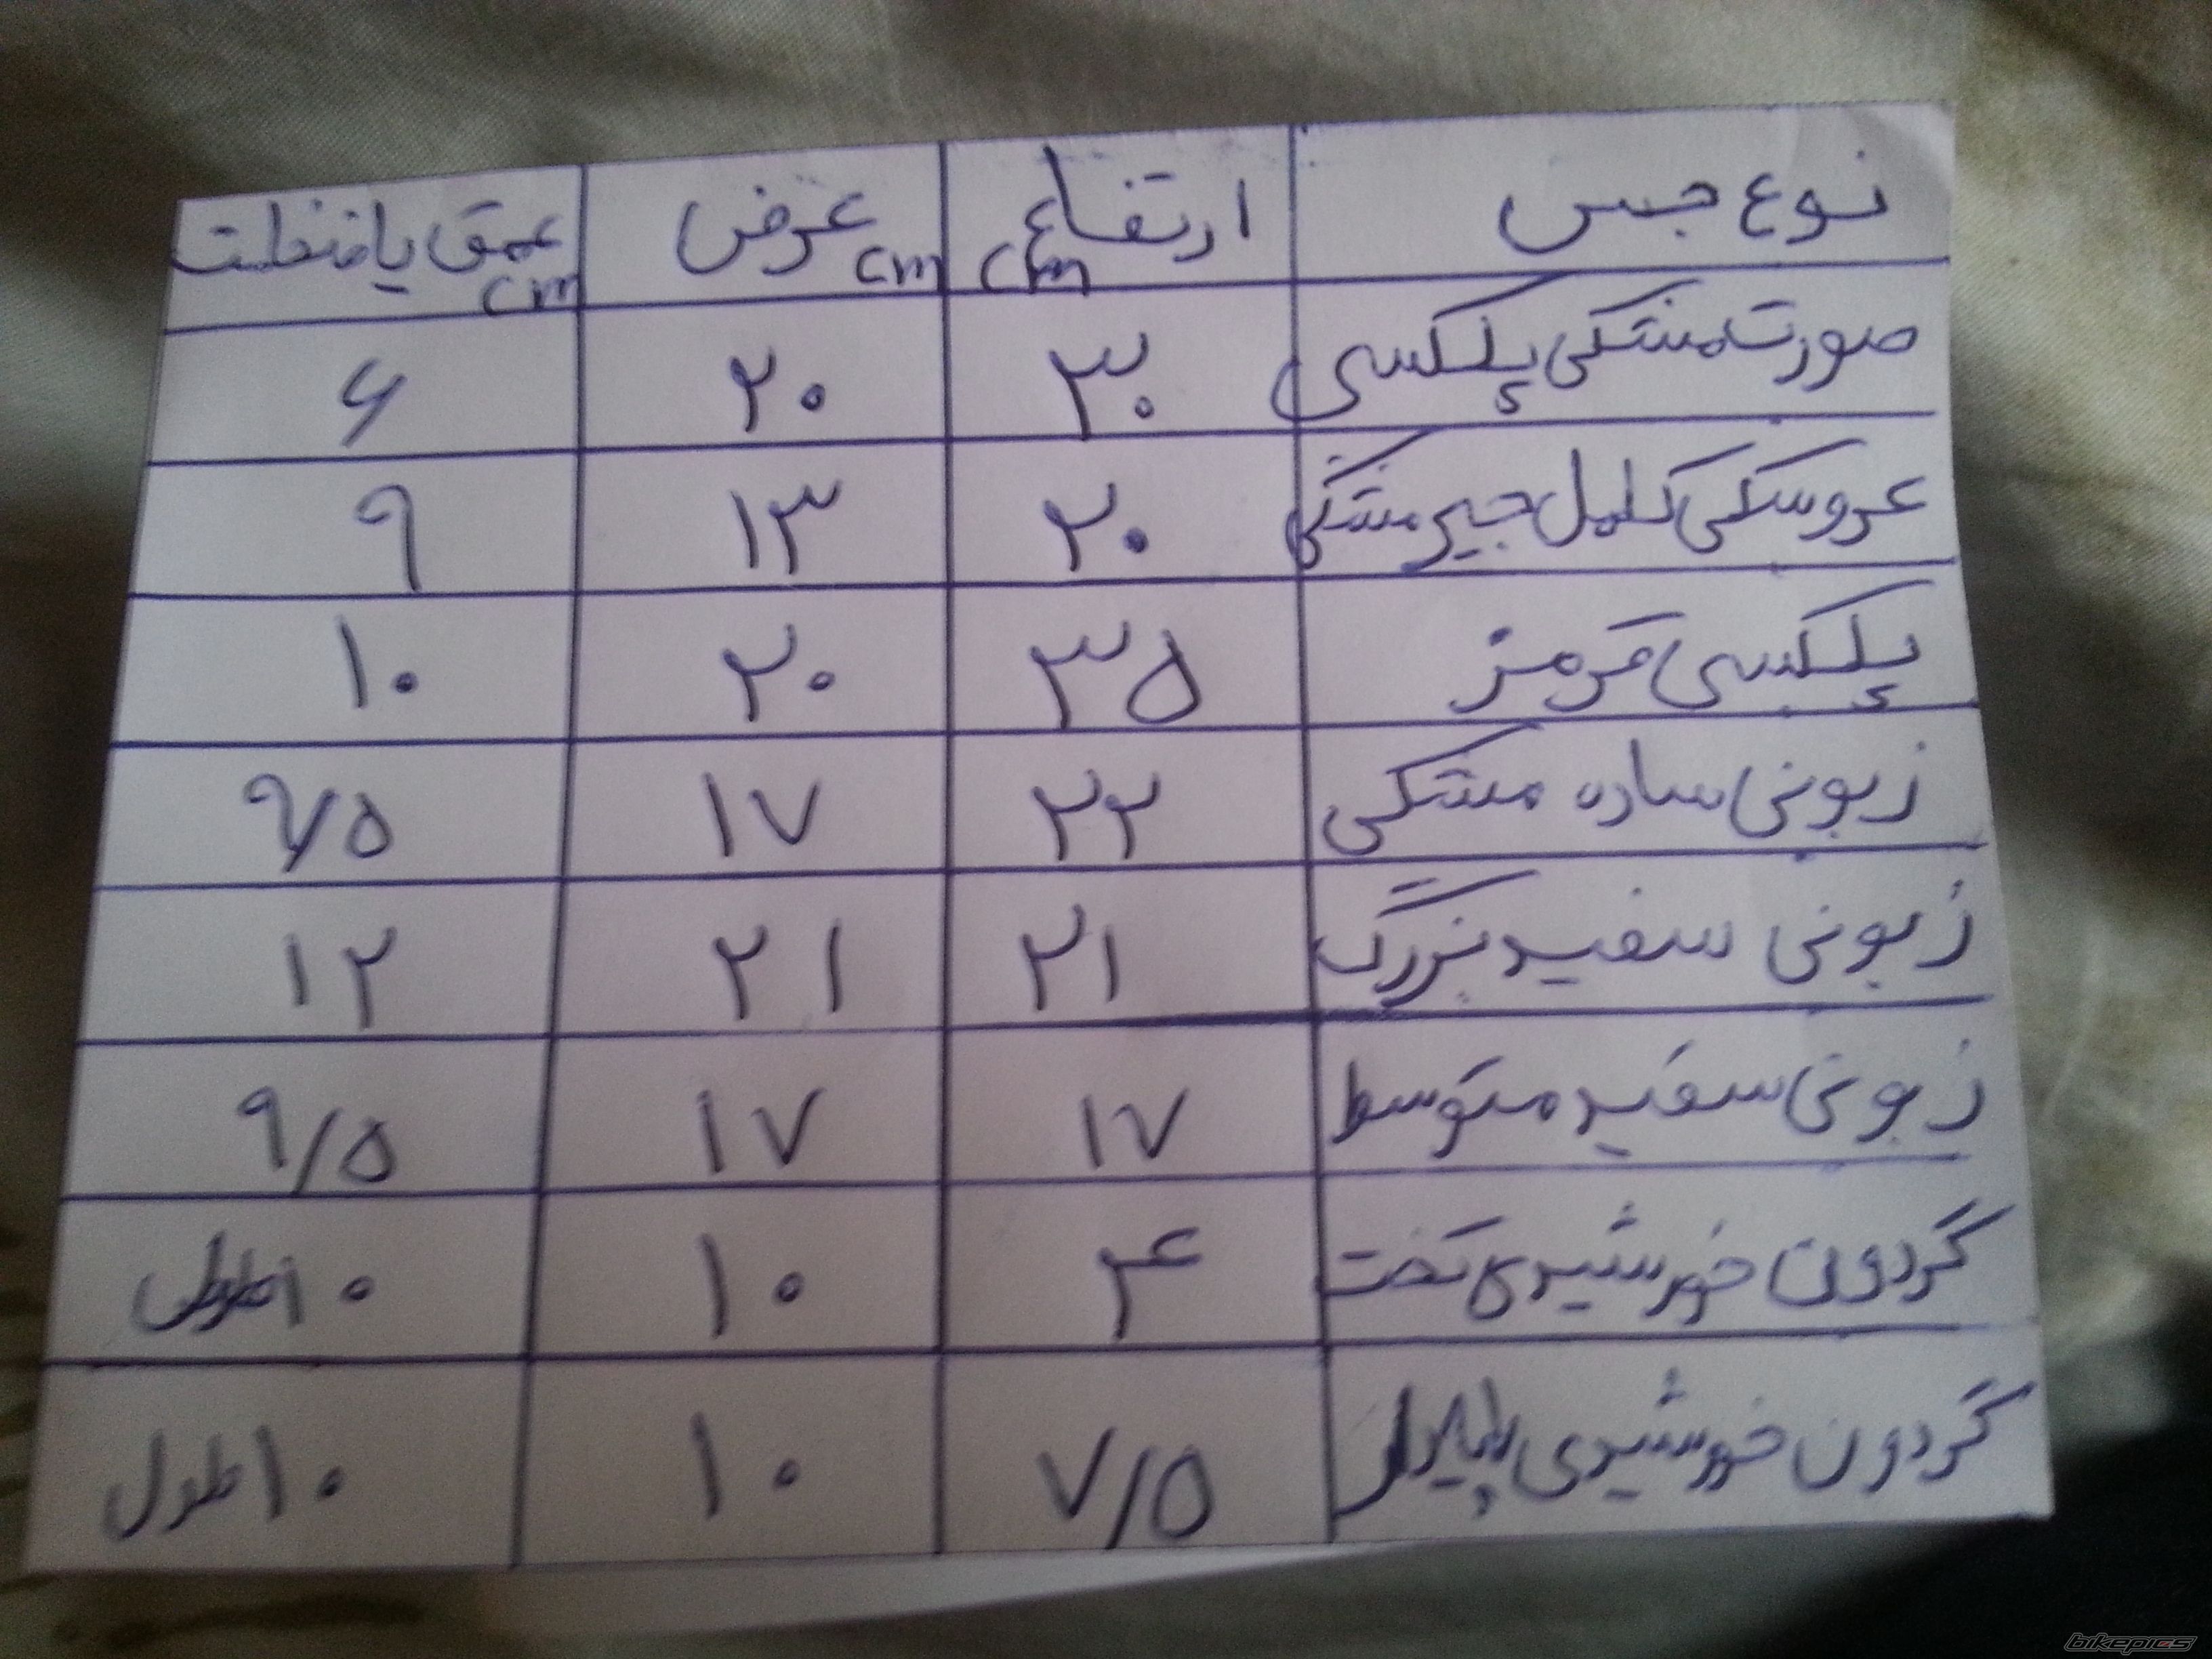 نوع جنس ارتفاع cm عرض cm عمق یا ضخامت cm
صورت مشکی پلکسی ۳۰ ۲۰ ۶
عروسکی کامل جیر مشکی ۲۰ ۱۳ ۹
پلکسی قرمز ۳۵ ۲۰ ۱۰
زبونی ساده مشکی ۲۲ ۱۷ ۹/۵
زبونی سفید بزرگ ۲۱ ۲۱ ۱۲
زبونی سفید متوسط ۱۷ ۱۷ ۹/۵
گردون خورشیدی تخت ۴ ۱۰ ۱۰ طول
گردون خورشیدی پایدار ۷/۵ ۱۰ ۱۰ طول
bikepics